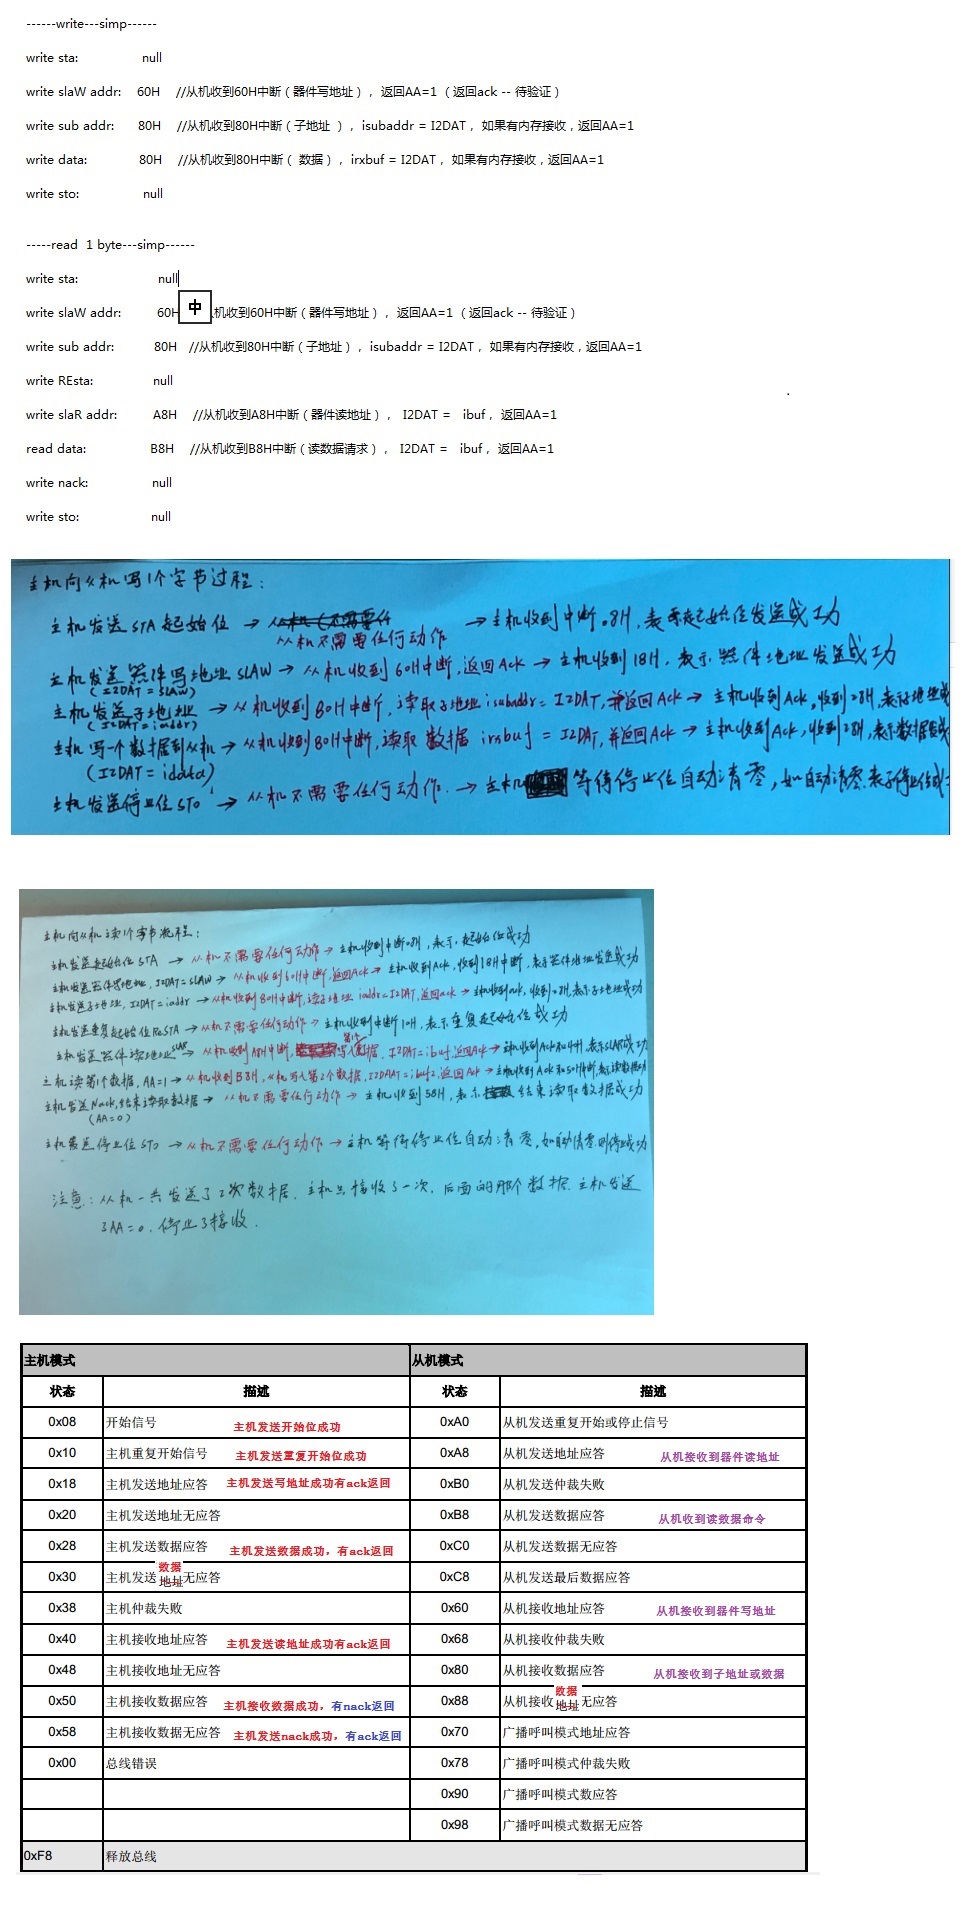 ------write---simp------
write sta: null
write slaW addr: 60H //从机收到60H中断（器件写地址），返回AA=1 （返回ack -- 待验证）
write sub addr: 80H //从机收到80H中断（子地址 ），isubaddr = I2DAT， 如果有内存接收，返回AA=1
write data: 80H //从机收到80H中断（ 数据），irxbuf = I2DAT， 如果有内存接收，返回AA=1
write sto: null
-----read 1 byte---simp------
write sta: null
中
write slaW addr: 60H 机收到60H中断（器件写地址），返回AA=1 （返回ack -- 待验证）
write sub addr: 80H //从机收到80H中断（子地址），isubaddr = I2DAT， 如果有内存接收，返回AA=1
write REsta: null
write slaR addr: A8H //从机收到A8H中断（器件读地址）， I2DAT = ibuf，返回AA=1
read data: B8H //从机收到B8H中断（读数据请求）， I2DAT = ibuf，返回AA=1
write nack: null
write sto: null
主机向从机写1个字节过程：
主机发送STA起始位 → 从机不需要任何动作 → 主机收到中断08H，表示起始位发送成功
主机发送器件写地址SLAW → 从机收到60H中断，返回Ack → 主机收到18H，表示器件地址发送成功
(I2DAT = SLAW)
主机发送子地址 → 从机收到80H中断，读取子地址isubaddr = I2DAT，并返回Ack → 主机收到Ack，收到28H，表示子地址成
(I2DAT = iaddr)
主机写一个数据到从机 → 从机收到80H中断，读取数据irxbuf = I2DAT，并返回Ack → 主机收到Ack，收到28H，表示数据
(I2DAT = idata)
主机发送停止位STO → 从机不需要任何动作 → 主机等待停止位自动清零，如自动清零表示停止位成
主机向从机读1个字节流程：
主机发送起始位STA → 从机不需要任何动作 → 主机收到中断08H，表示起始位成功
主机发送器件写地址，I2DAT=SLAW → 从机收到60H中断，返回Ack → 主机收到Ack，收到18H中断，表示器件地址发送成功
主机发送子地址，I2DAT=iaddr → 从机收到80H中断，读子地址 iaddr=I2DAT，返回ack → 主机收到ack，收到28H，表示子地址成功
主机发送重复起始位ReSTA → 从机不需要任何动作 → 主机收到中断10H，表示重复起始位成功
主机发送器件读地址SLAR → 从机收到A8H中断，写入第1个数据，I2DAT=ibuf，返回Ack → 主机收到Ack和40H，表示SLAR成功
主机读第1个数据，AA=1 → 从机收到B8H，从机写入第2个数据，I2DAT=ibuf2，返回Ack → 主机收到Ack和50H中断，表示读数据成功
主机发送Nack，结束读取数据 → 从机不需要任何动作 → 主机收到58H，表示结束读取数据成功
(AA=0)
主机发送停止位STO → 从机不需要任何动作 → 主机等待停止位自动清零，如自动清零则停止成功
注意：从机一共发送了2次数据，主机只接收了一次，后面的那个数据，主机发送
了AA=0，停止了接收.
主机模式 从机模式
状态 描述 状态 描述
0x08 开始信号 主机发送开始位成功 0xA0 从机发送重复开始或停止信号
0x10 主机重复开始信号 主机发送重复开始位成功 0xA8 从机发送地址应答 从机接收到器件读地址
0x18 主机发送地址应答 主机发送写地址成功有ack返回 0xB0 从机发送仲裁失败
0x20 主机发送地址无应答 0xB8 从机发送数据应答 从机收到读数据命令
0x28 主机发送数据应答 主机发送数据成功，有ack返回 0xC0 从机发送数据无应答
数据
0x30 主机发送地址无应答 0xC8 从机发送最后数据应答
0x38 主机仲裁失败 0x60 从机接收地址应答 从机接收到器件写地址
0x40 主机接收地址应答 主机发送读地址成功有ack返回 0x68 从机接收仲裁失败
0x48 主机接收地址无应答 0x80 从机接收数据应答 从机接收到子地址或数据
数据
0x50 主机接收数据应答 主机接收数据成功，有nack返回 0x88 从机接收地址无应答
0x58 主机接收数据无应答 主机发送nack成功，有ack返回 0x70 广播呼叫模式地址应答
0x00 总线错误 0x78 广播呼叫模式仲裁失败
0x90 广播呼叫模式数应答
0x98 广播呼叫模式数据无应答
0xF8 释放总线